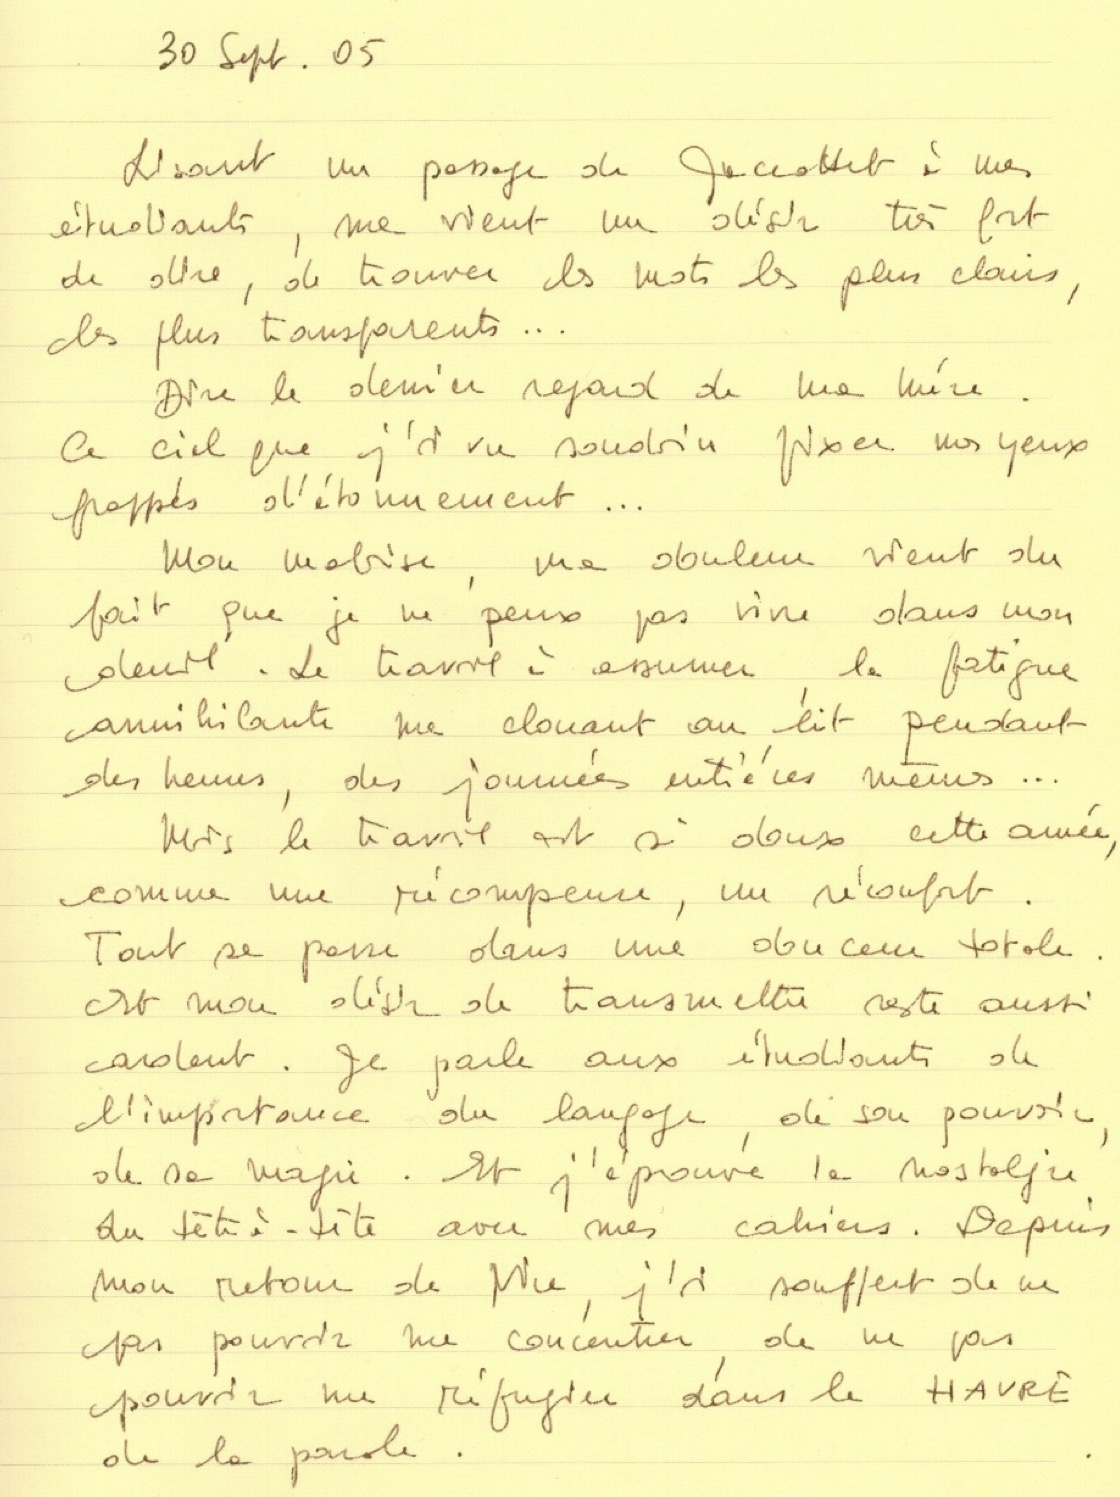 30 Sept. 05
Lisant un passage de Jaccottet à mes
étudiants, me vient un désir très fort
de dire, de trouver les mots les plus clairs,
les plus transparents...
Dire le dernier regard de ma mère.
Ce ciel que j'ai vu soudain fixer nos yeux
frappés d'étonnement...
Mon malaise, ma douleur vient du
fait que je ne peux pas vivre dans mon
deuil. Le travail à assumer, la fatigue
annihilante me clouant au lit pendant
des heures, des journées entières mêmes...
Mais le travail est si doux cette année,
comme une récompense, un réconfort.
Tout se passe dans une douceur totale.
Et mon désir de transmettre reste aussi
ardent. Je parle aux étudiants de
l'importance du langage, de son pouvoir,
de sa magie. Et j'éprouve la nostalgie
du tête à-tête avec mes cahiers. Depuis
mon retour de, j'ai souffert de ne
pas pouvoir me concentrer, de ne pas
pouvoir me réfugier dans le HAVRE
de la parole.